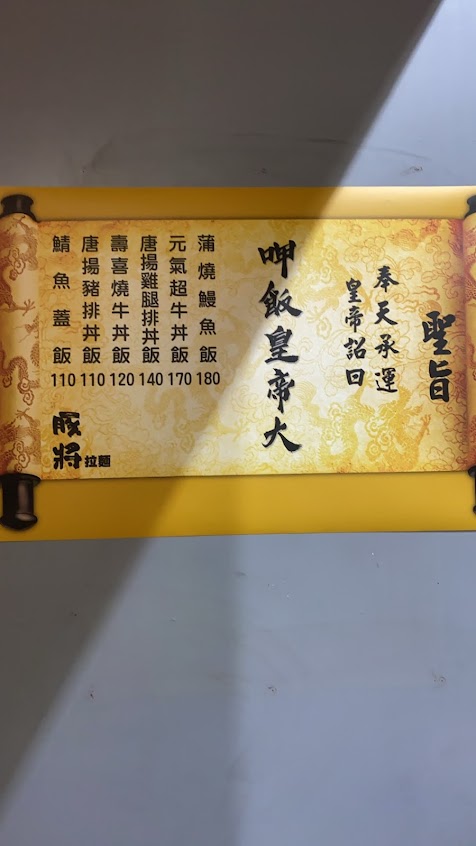 聖旨
奉天承運
皇帝詔曰
呷飯皇帝大
蒲燒鰻魚飯180
元氣超牛丼飯170
唐揚雞腿排丼飯140
壽喜燒牛丼飯120
唐揚豬排丼飯110
鯖魚蓋飯110
豚將拉麵